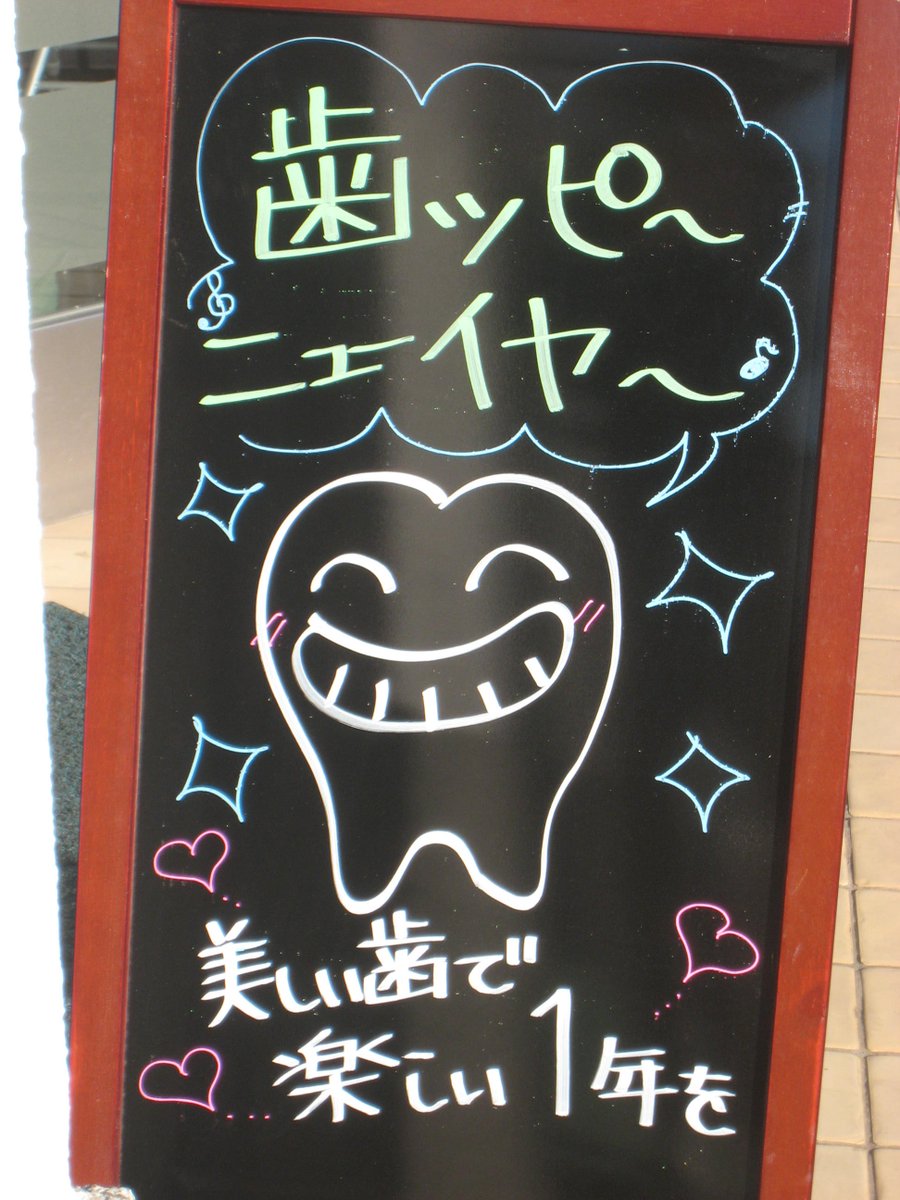 歯ッピ〜
ニューイヤ〜
美しい歯で
楽しい1年を